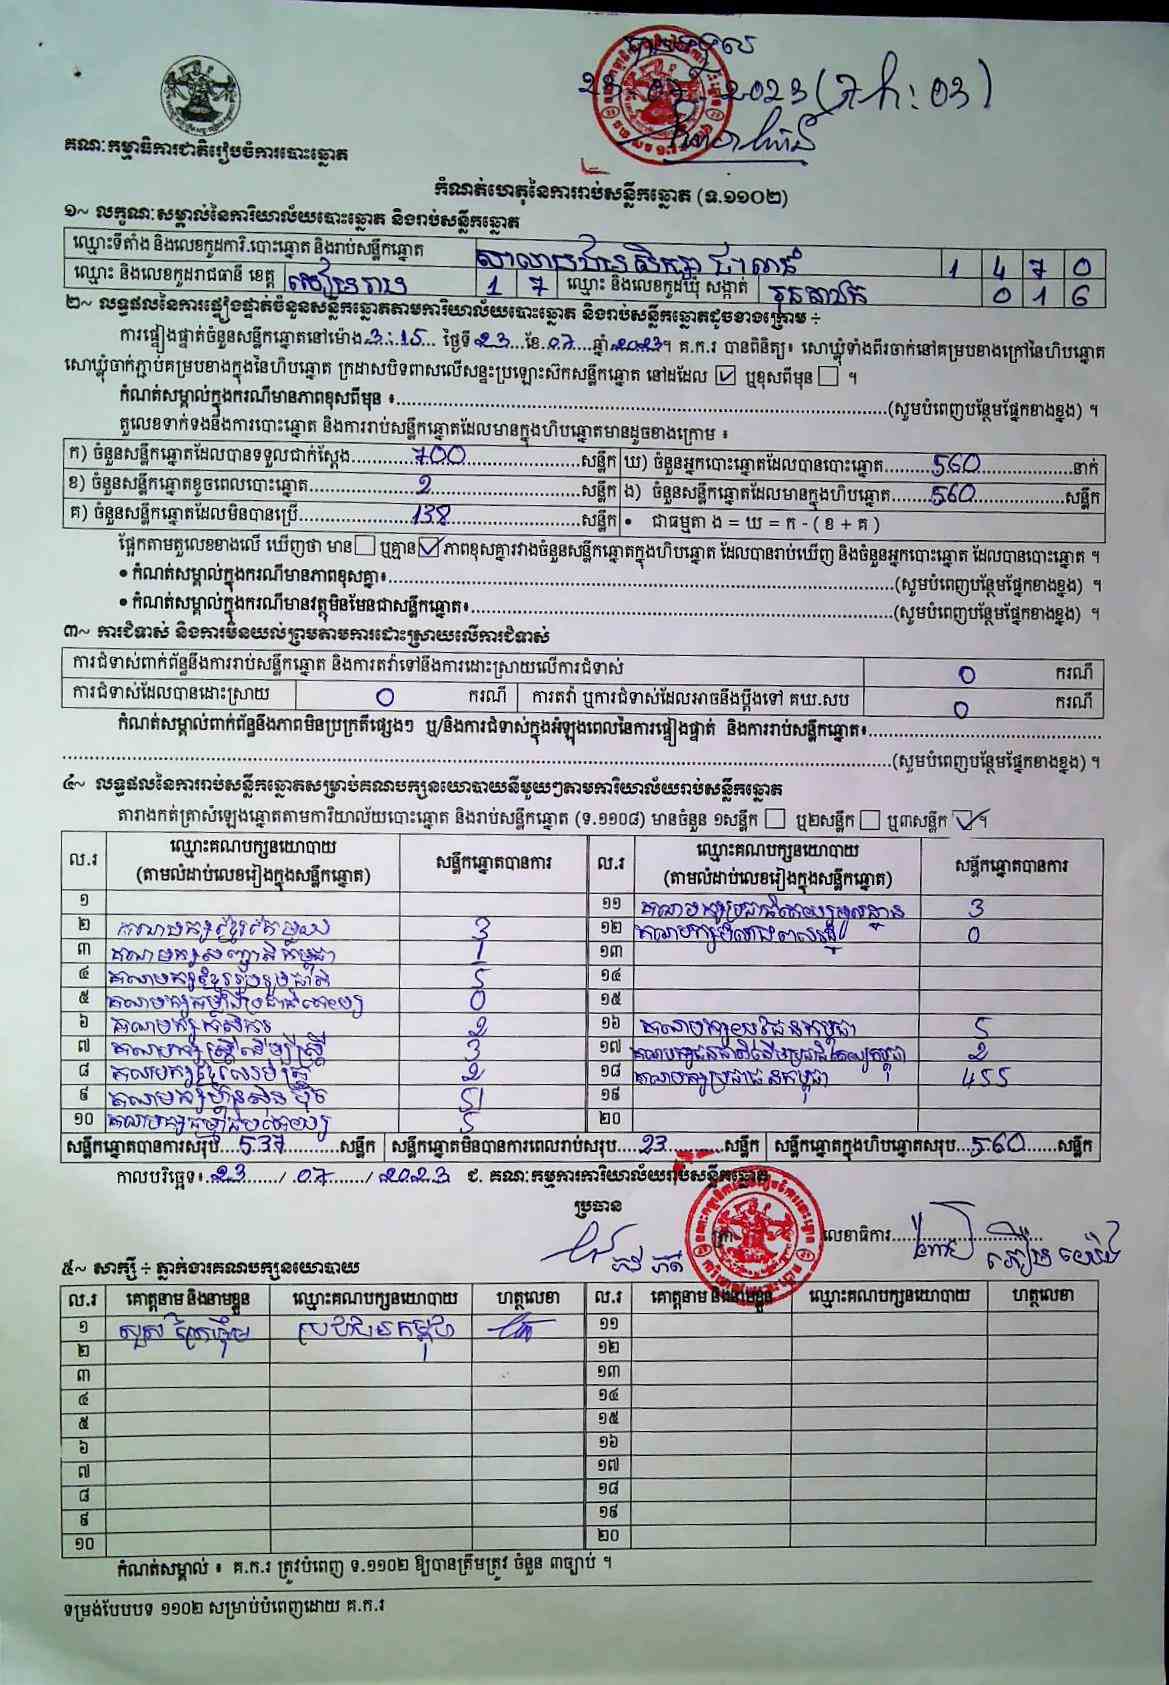 បានទទួល
23.07.2023 (គ.ហ: 03)
គណៈកម្មាធិការជាតិរៀបចំការបោះឆ្នោត
កំណត់ហេតុនៃការរាប់សន្លឹកឆ្នោត (ទ.១១០២)
១~ លក្ខណៈសម្គាល់នៃការិយាល័យបោះឆ្នោត និងរាប់សន្លឹកឆ្នោត
ឈ្មោះទីតាំង និងលេខកូដការិ.បោះឆ្នោត និងរាប់សន្លឹកឆ្នោត 1 4 7 0
ឈ្មោះ និងលេខកូដរាជធានី ខេត្ត សៀមរាប 1 7 ឈ្មោះ និងលេខកូដឃុំ សង្កាត់ 0 1 6
២~ លទ្ធផលនៃការផ្ទៀងផ្ទាត់ចំនួនសន្លឹកឆ្នោតតាមការិយាល័យបោះឆ្នោត និងរាប់សន្លឹកឆ្នោតដូចខាងក្រោម ÷
ការផ្ទៀងផ្ទាត់ចំនួនសន្លឹកឆ្នោតនៅម៉ោង 3:15 ថ្ងៃទី 23 ខែ 07 ឆ្នាំ 2023។ គ.ក.រ បានពិនិត្យ៖ សោឃ្លុំទាំងពីរចាក់នៅគម្របខាងក្រៅនៃហិបឆ្នោត
សោឃ្លុំចាក់ភ្ជាប់គម្របខាងក្នុងនៃហិបឆ្នោត ក្រដាសបិទពាសលើសន្ទះប្រឡោះស៊កសន្លឹកឆ្នោត នៅដដែល ☑ ឬខុសពីមុន ☐ ។
កំណត់សម្គាល់ក្នុងករណីមានភាពខុសពីមុន ៖..........(សូមបំពេញបន្ថែមផ្នែកខាងខ្នង) ។
តួលេខទាក់ទងនឹងការបោះឆ្នោត និងការរាប់សន្លឹកឆ្នោតដែលមានក្នុងហិបឆ្នោតមានដូចខាងក្រោម ៖
ក) ចំនួនសន្លឹកឆ្នោតដែលបានទទួលជាក់ស្តែង 700 សន្លឹក ឃ) ចំនួនអ្នកបោះឆ្នោតដែលបានបោះឆ្នោត 560 នាក់
ខ) ចំនួនសន្លឹកឆ្នោតខូចពេលបោះឆ្នោត 2 សន្លឹក ង) ចំនួនសន្លឹកឆ្នោតដែលមានក្នុងហិបឆ្នោត 560 សន្លឹក
គ) ចំនួនសន្លឹកឆ្នោតដែលមិនបានប្រើ 138 សន្លឹក • ជាធម្មតា ង = ឃ = ក - ( ខ + គ )
ផ្អែកតាមតួលេខខាងលើ ឃើញថា មាន ☐ ឬគ្មាន ☑ ភាពខុសគ្នារវាងចំនួនសន្លឹកឆ្នោតក្នុងហិបឆ្នោត ដែលបានរាប់ឃើញ និងចំនួនអ្នកបោះឆ្នោត ដែលបានបោះឆ្នោត ។
• កំណត់សម្គាល់ក្នុងករណីមានភាពខុសគ្នា៖..........(សូមបំពេញបន្ថែមផ្នែកខាងខ្នង) ។
• កំណត់សម្គាល់ក្នុងករណីមានវត្ថុមិនមែនជាសន្លឹកឆ្នោត៖..........(សូមបំពេញបន្ថែមផ្នែកខាងខ្នង) ។
៣~ ការជំទាស់ និងការមិនយល់ព្រមតាមការដោះស្រាយលើការជំទាស់
ការជំទាស់ពាក់ព័ន្ធនឹងការរាប់សន្លឹកឆ្នោត និងការតវ៉ាទៅនឹងការដោះស្រាយលើការជំទាស់ 0 ករណី
ការជំទាស់ដែលបានដោះស្រាយ 0 ករណី ការតវ៉ា ឬការជំទាស់ដែលអាចនឹងប្តឹងទៅ គឃ.សប 0 ករណី
កំណត់សម្គាល់ពាក់ព័ន្ធនឹងភាពមិនប្រក្រតីផ្សេងៗ ឬ/និងការជំទាស់ក្នុងអំឡុងពេលនៃការផ្ទៀងផ្ទាត់ និងការរាប់សន្លឹកឆ្នោត៖..........
..........(សូមបំពេញបន្ថែមផ្នែកខាងខ្នង) ។
៤~ លទ្ធផលនៃការរាប់សន្លឹកឆ្នោតសម្រាប់គណបក្សនយោបាយនីមួយៗតាមការិយាល័យរាប់សន្លឹកឆ្នោត
តារាងកត់ត្រាសំឡេងឆ្នោតតាមការិយាល័យបោះឆ្នោត និងរាប់សន្លឹកឆ្នោត (ទ.១១០៨) មានចំនួន ១សន្លឹក ☐ ឬ២សន្លឹក ☐ ឬ៣សន្លឹក ☑។
ល.រ ឈ្មោះគណបក្សនយោបាយ (តាមលំដាប់លេខរៀងក្នុងសន្លឹកឆ្នោត) សន្លឹកឆ្នោតបានការ ល.រ ឈ្មោះគណបក្សនយោបាយ (តាមលំដាប់លេខរៀងក្នុងសន្លឹកឆ្នោត) សន្លឹកឆ្នោតបានការ
១ ១១ គណបក្សប្រជាធិបតេយ្យមូលដ្ឋាន 3
២ គណបក្សខ្មែរតែមួយ 3 ១២ 0
៣ គណបក្សសញ្ជាតិកម្ពុជា 1 ១៣
៤ គណបក្សខ្មែររួបរួមជាតិ 5 ១៤
៥ គណបក្សកម្លាំងប្រជាធិបតេយ្យ 0 ១៥
៦ គណបក្សកសិករ 2 ១៦ គណបក្សយុវជនកម្ពុជា 5
៧ គណបក្សស្ត្រីដើម្បីស្ត្រី 3 ១៧ គណបក្សជនជាតិដើមប្រជាធិបតេយ្យកម្ពុជា 2
៨ 2 ១៨ គណបក្សប្រជាជនកម្ពុជា 455
៩ គណបក្សហ្វ៊ុនស៊ិនប៉ិច 51 ១៩
១០ 5 ២០
សន្លឹកឆ្នោតបានការសរុប 537 សន្លឹក សន្លឹកឆ្នោតមិនបានការពេលរាប់សរុប 23 សន្លឹក សន្លឹកឆ្នោតក្នុងហិបឆ្នោតសរុប 560 សន្លឹក
កាលបរិច្ឆេទ៖ 23 / 07 / 2023 ជ. គណៈកម្មការការិយាល័យរាប់សន្លឹកឆ្នោត
ប្រធាន លេខាធិការ
៥~ សាក្សី ÷ ភ្នាក់ងារគណបក្សនយោបាយ
ល.រ គោត្តនាម និងនាមខ្លួន ឈ្មោះគណបក្សនយោបាយ ហត្ថលេខា ល.រ គោត្តនាម និងនាមខ្លួន ឈ្មោះគណបក្សនយោបាយ ហត្ថលេខា
១ ប្រជាជនកម្ពុជា ១១
២ ១២
៣ ១៣
៤ ១៤
៥ ១៥
៦ ១៦
៧ ១៧
៨ ១៨
៩ ១៩
១០ ២០
កំណត់សម្គាល់ ៖ គ.ក.រ ត្រូវបំពេញ ទ.១១០២ ឱ្យបានត្រឹមត្រូវ ចំនួន ៣ច្បាប់ ។
ទម្រង់បែបបទ ១១០២ សម្រាប់បំពេញដោយ គ.ក.រ